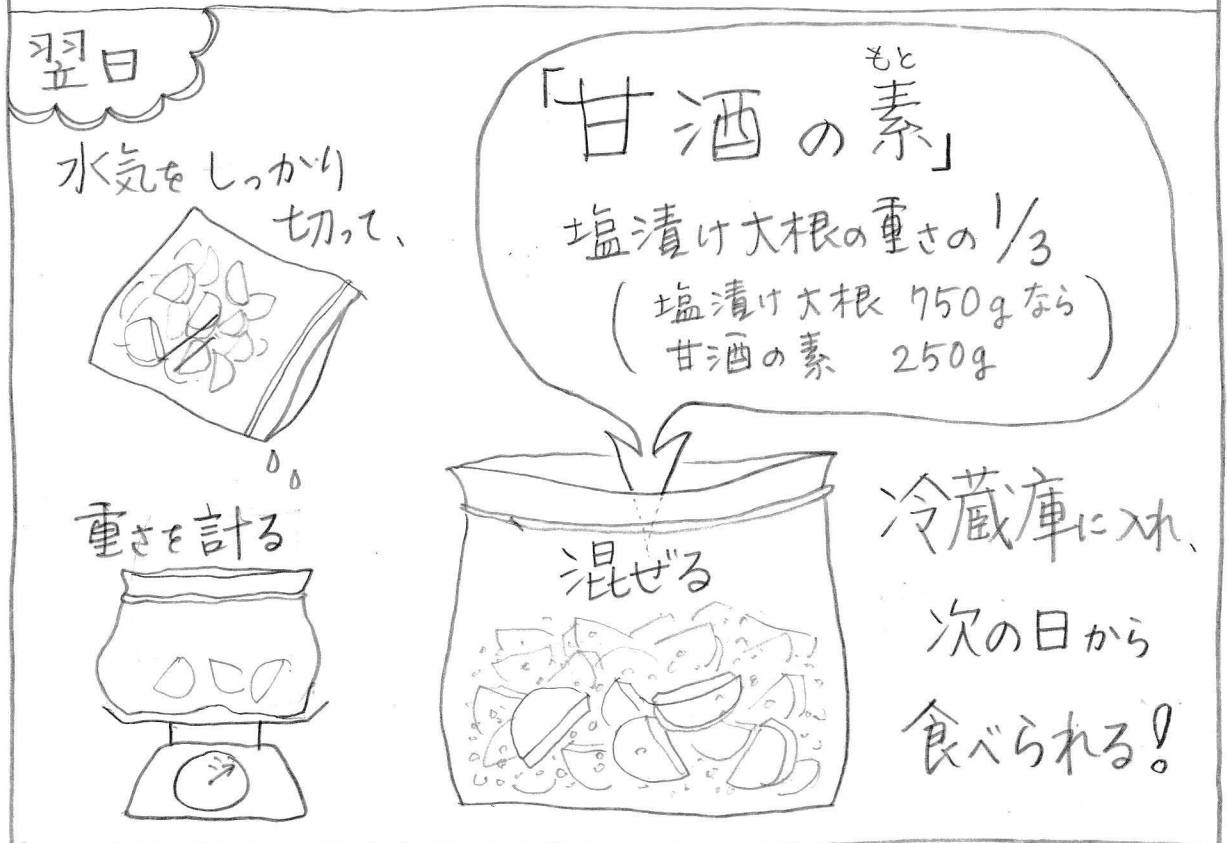 翌日
水気をしっかり
切って、
重さを計る
もと
「甘酒の素」
塩漬け大根の重さの1/3
(塩漬け大根 750gなら
甘酒の素 250g)
混ぜる
冷蔵庫に入れ、
次の日から
食べられる!